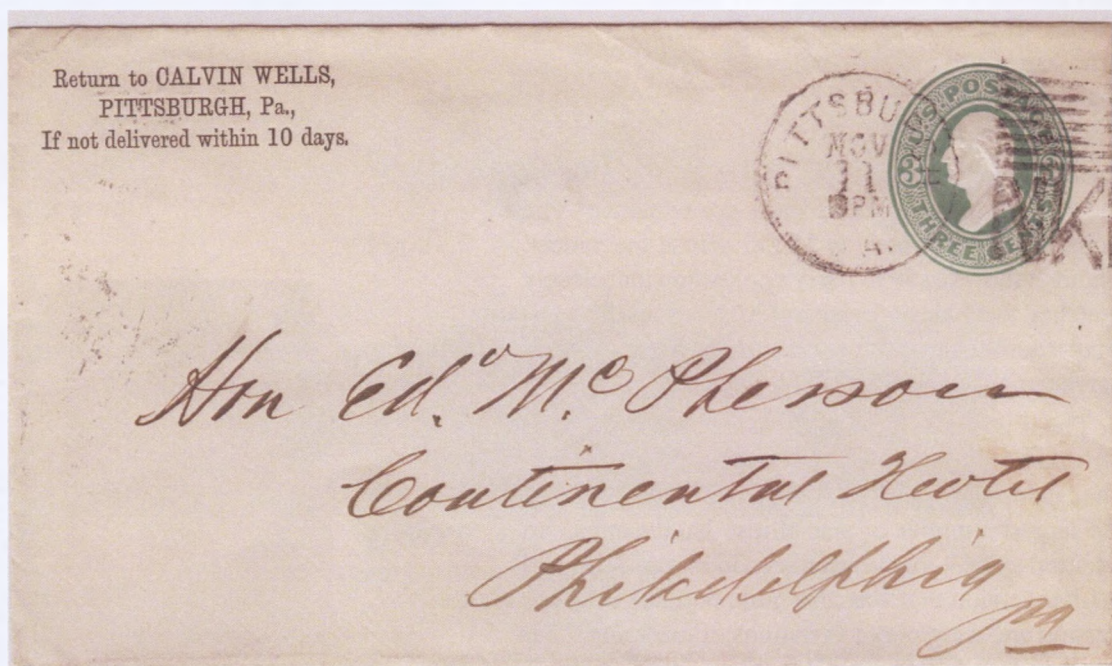 Return to CALVIN WELLS,
PITTSBURGH, Pa.,
If not delivered within 10 days.
PITTSBU
NOV
11
PM
A.
U.S. POSTAGE
3 3
THREE CENTS
Hon Ed. Mc Pherson
Continental Hotel
Philadelphia
pa